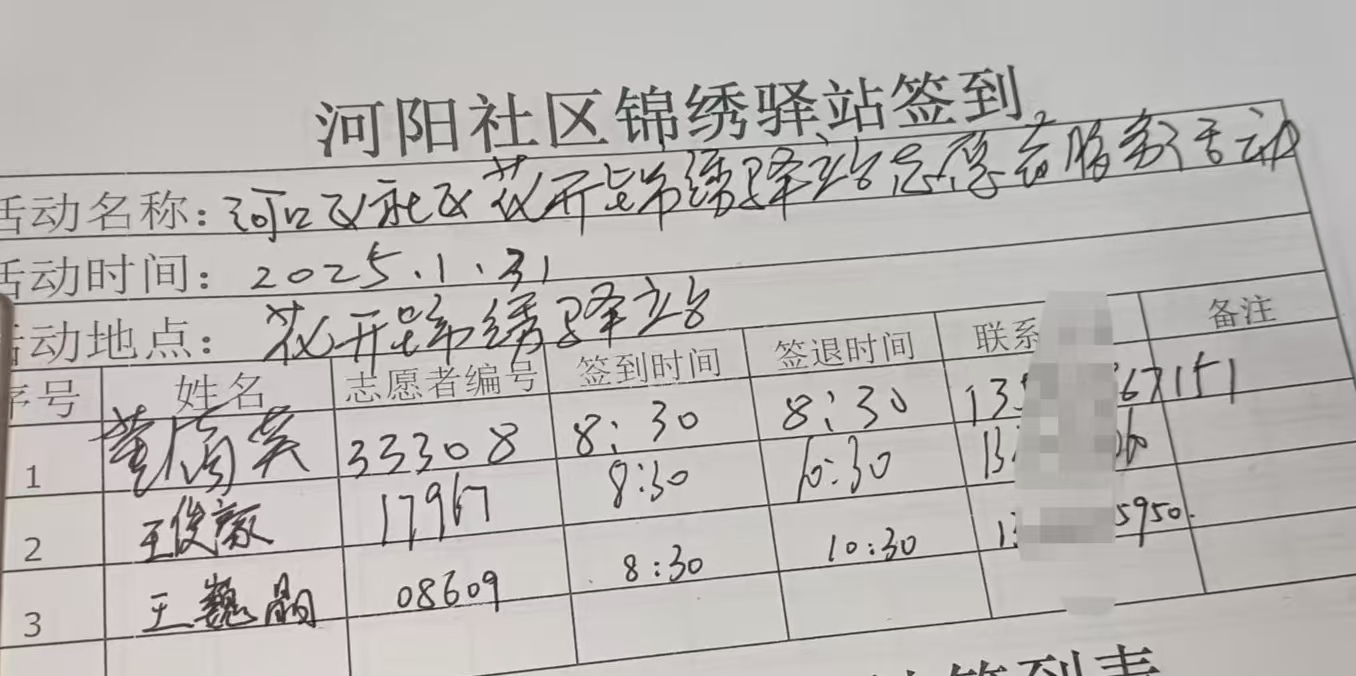 河阳社区锦绣驿站签到
活动名称：河口区社区花开锦绣驿站志愿者服务活动
活动时间：2025.1.31
活动地点：花开锦绣驿站
序号 姓名 志愿者编号 签到时间 签退时间 联系 备注
1 董 英 33308 8:30 8:30 13 67151
2 王俊 17967 8:30 10:30 13 60
3 王巍 08609 8:30 10:30 1 5950.
签到表